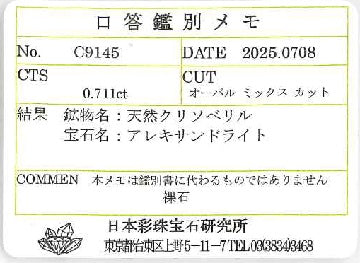 口答鑑別メモ
No. C9145 DATE 2025.0708
CTS 0.711ct CUT オーバル ミックス カット
結果 鉱物名：天然クリソベリル
宝石名：アレキサンドライト
COMMEN 本メモは鑑別書に代わるものではありません
裸石
日本彩珠宝石研究所
東京都台東区上野5-11-7 TEL03(3834)3468